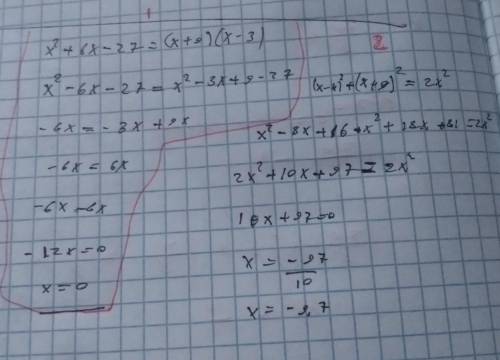 1
x² + 6x - 27 = (x + 9)(x - 3)
x² - 6x - 27 = x² - 3x + 9 - 27
-6x = -3x + 9x
-6x = 6x
-6x -6x
-12x = 0
x = 0
2
(x-4)² + (x+9)² = 2x²
x² - 8x + 16 + x² + 18x + 81 = 2x²
2x² + 10x + 97 = 2x²
10x + 97 = 0
x = -97/10
x = -9,7